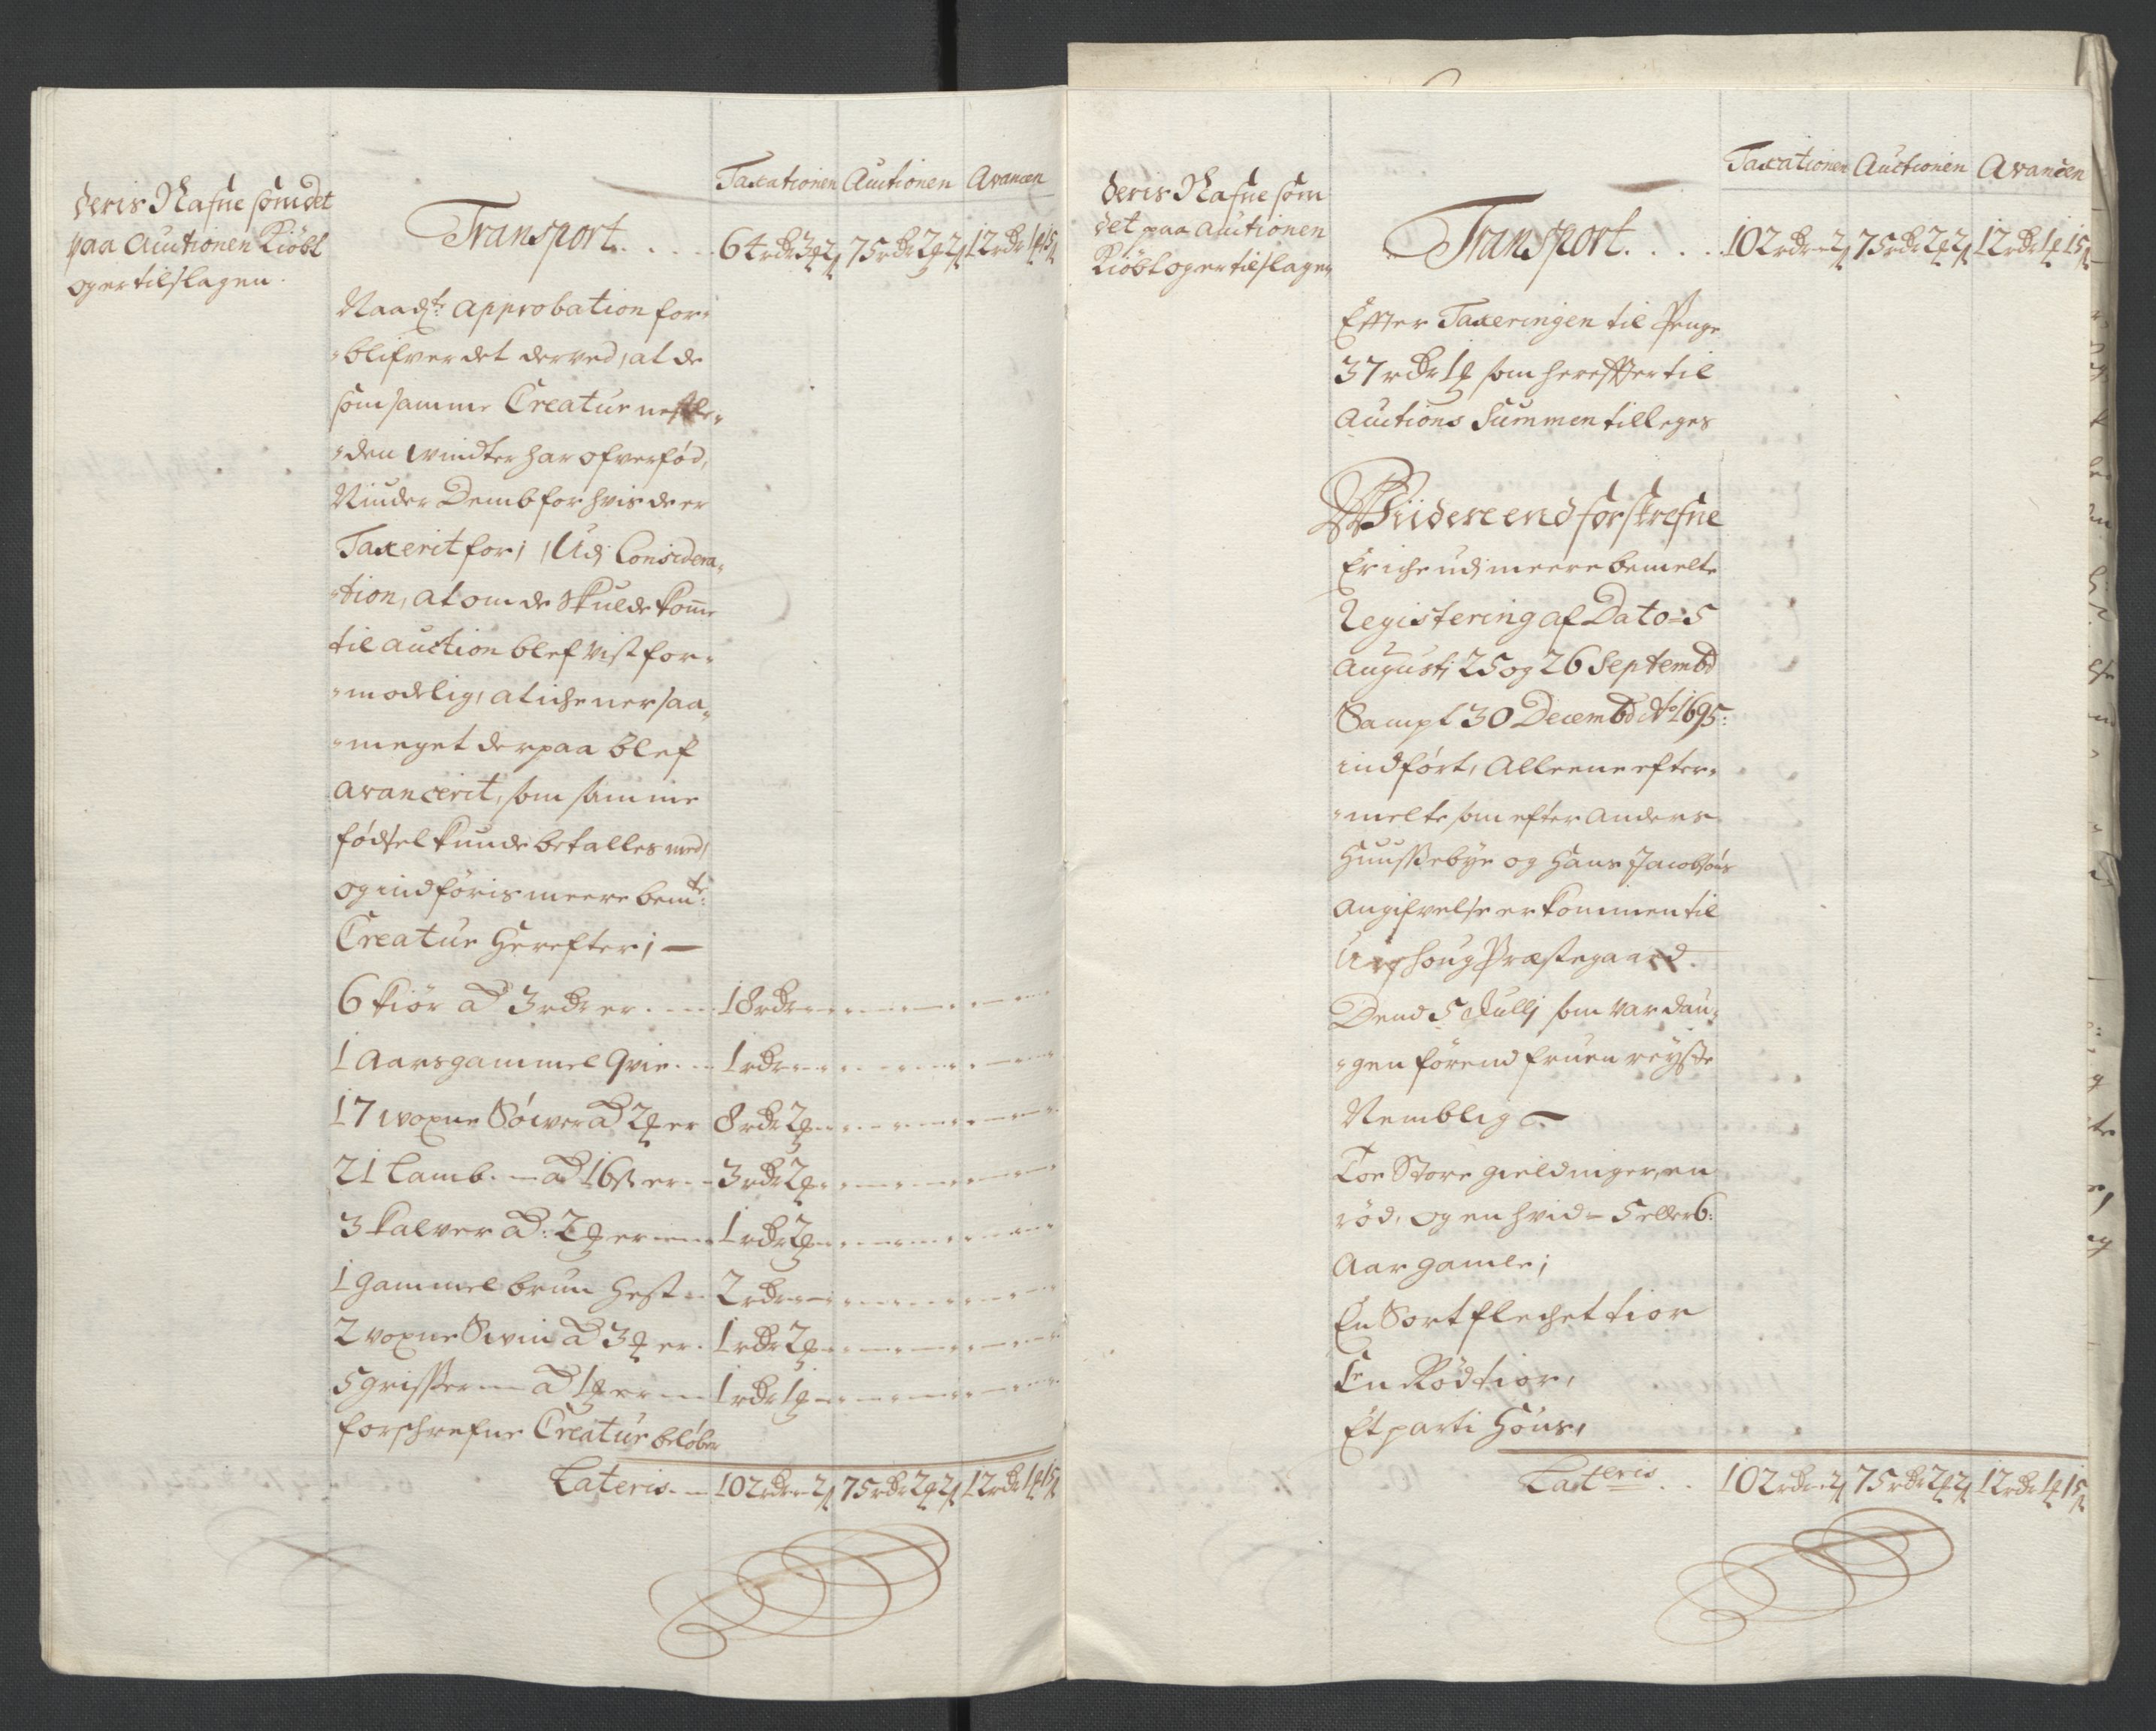 deris Nafne som det
paa Auctionen Kiöbt
og er tilslagen.
Taxationen Auctionen Avancen
Transport. . . . . 64 rdr 3 ort 2 s 75 rdr 2 ort 2 s 12 rdr 1 ort 15 s
Naadr. approbation for-
blifver det derved, at de
som samme Creatur
den vindter har ofverfød,
Niuder Demb for hvis de er
Taxerit for; Udj Considera-
tion, at om de skulde komme
til auction blef vist for-
modelig, at iche
meget derpaa blef
avancerit, som samme
fødsel kunde betalles med,
og indføris meere bemte:
Creatur Herefter; —
6 kiör ad 3 rdr er. . . . 18 rdr
1 Aarsgammel Qvie. . . 1 rdr
17 voxne Söwer ad 2 ort er 8 rdr 2 ort
21 Lamb. — ad 16 s er. — 3 rdr 2 ort
3 Kalver ad: 2 ort er — 1 rdr 2 ort
1 gammel brun Hest — 2 rdr
2 voxne Swin ad 3 ort er. 1 rdr 2 ort
5 grisser — ad 1 ort er — 1 rdr 1 ort
forschrefne Creatur beløber
Lateris. — 102 rdr — 2 s 75 rdr 2 ort 2 s 12 rdr 1 ort 15 s
deris Nafne som
det paa Auctionen
Kiöbt og er tilslagen
Taxationen Auctionen Avancen
Transport. . . . . 102 rdr — 2 s 75 rdr 2 ort 2 s 12 rdr 1 ort 15 s
Efter Taxeringen til Penge
37 rdr 1 ort som herefter til
Auctions Summen tilleges
Widere end forskrefne
Er iche udj meere bemelte
Registering af Dato 5
Augustj 25 og 26 Septembr
Sampt 30 Decembr Ao 1695:
indført, Alleene efter-
melte som efter Anders
Huussebye og Hans Jacobsøns
Angifvelse er kommen til
Præstegaard.
Dend 5 Julij som var dau-
gen førend fruen reyste
Nemblig —
Toe Store gieldinger, en
rød, og en hvid — 5 eller 6:
Aar gamle;
En Sort flechet tior
En Rød tior,
Et parti Höns,
Lateris . . 102 rdr — 2 s 75 rdr 2 ort 2 s 12 rdr 1 ort 15 s